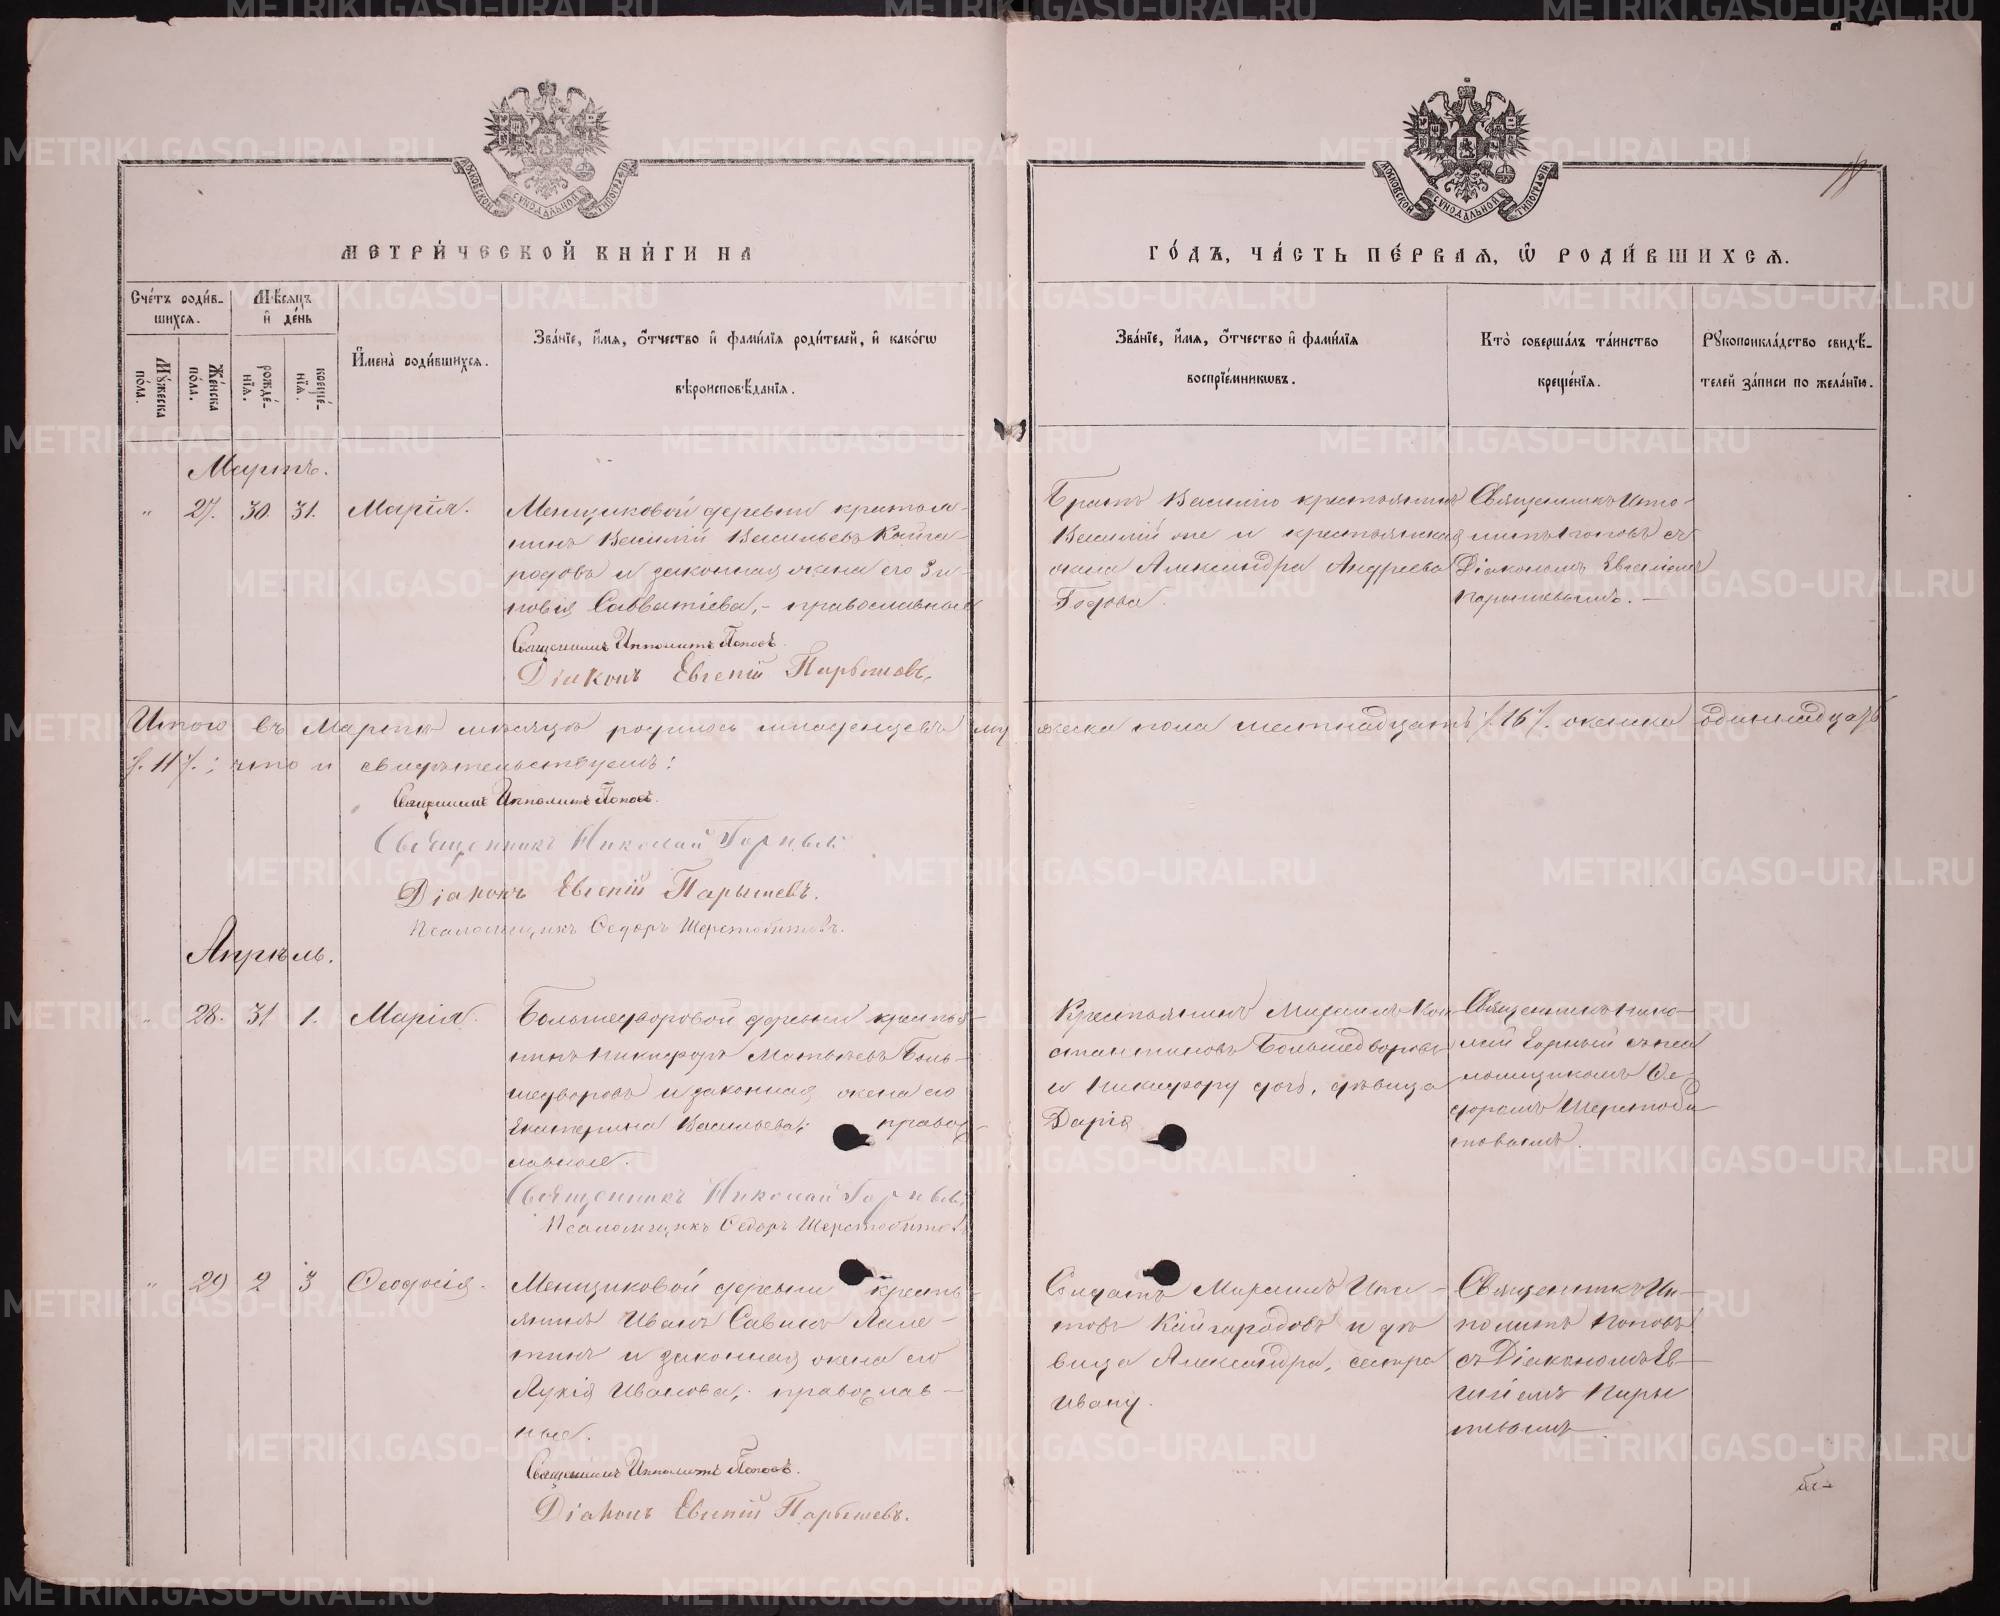 МЕТРИ́ЧЕСКОЙ КНИ́ГИ НА
ГО́ДЪ, ЧА́СТЬ ПЕ́РВАѦ, Ѡ РОДИ́ВШИХСѦ.
МОСКОВСКОЙ СѴНОДАЛЬНОЙ ТИПОГРАФІИ
МОСКОВСКОЙ СѴНОДАЛЬНОЙ ТИПОГРАФІИ
Сче́тъ роди́в-
шихсѧ.
Мꙋ́жеска по́ла.
Же́нска по́ла.
Мѣ́сѧцъ
и де́нь
рожде́-
нїѧ.
креще́-
нїѧ.
И҆мена̀ роди́вшихсѧ.
Зва́нїе, и҆́мѧ, ѻ҆́тчество и҆ фами́лїѧ роди́телей, и҆ како́гѡ
вѣроисповѣ́данїѧ.
Зва́нїе, и҆́мѧ, ѻ҆́тчество и҆ фами́лїѧ
воспрїе́мникѡвъ.
Кто̀ соверша́лъ та́инство
креще́нїѧ.
Рꙋкоприкла́дство свидѣ́-
телей за́писи по жела́нїю.
Мартъ.
" 27. 30. 31. Марія.
Менщиковой деревни крестья-
нинъ Василій Васильевъ Кайга-
родовъ и законная жена его Зи-
новія Савватіева, - православные
Священникъ Ипполитъ Поповъ.
Діаконъ Евгеній Парышевъ.
Братъ Василію крестьянинъ
Василій же и крестьянская
жена Александра Андреева
Священникъ Иппо-
литъ Поповъ съ
Діакономъ Евгеніемъ
Парышевымъ. -
Итого въ Мартѣ мѣсяцѣ родилось младенцевъ мужеска пола шестнадцать /. 16 /. женска одиннадцать
/. 11 /. ; что и свидѣтельствуемъ:
Священникъ Ипполитъ Поповъ.
Священникъ Николай Горный
Діаконъ Евгеній Парышевъ.
Псаломщикъ Ѳедоръ Шерстобитовъ.
Апрѣль.
" 28. 31 1. Марія.
Большедворовой деревни крестья-
нинъ Никифоръ Матвѣевъ Боль-
шедворовъ и законная жена его
Екатерина Васильева; правос-
лавные.
Священникъ Николай Горный
Псаломщикъ Ѳедоръ Шерстобитовъ
Крестьянинъ Михаилъ Кон-
стантиновъ Большедворовъ
и Никифору дочь, дѣвица
Дарія
Священникъ Нико-
лай Горный съ пса-
ломщикомъ Ѳе-
доромъ Шерстоби-
товымъ.
" 29 2 3 Ѳеодосія.
Менщиковой деревни кресть-
янинъ Иванъ Савинъ Лале-
тинъ и законная жена его
Лукія Иванова; православ-
ные.
Священникъ Ипполитъ Поповъ.
Діаконъ Евгеній Парышевъ.
Солдатъ Михаилъ
Кайгородовъ и дѣ-
вица Александра, сестра
Ивану.
Священникъ Ип-
политъ Поповъ
съ Діакономъ Ев-
геніемъ Пары-
шевымъ.
METRIKI.GASO-URAL.RU